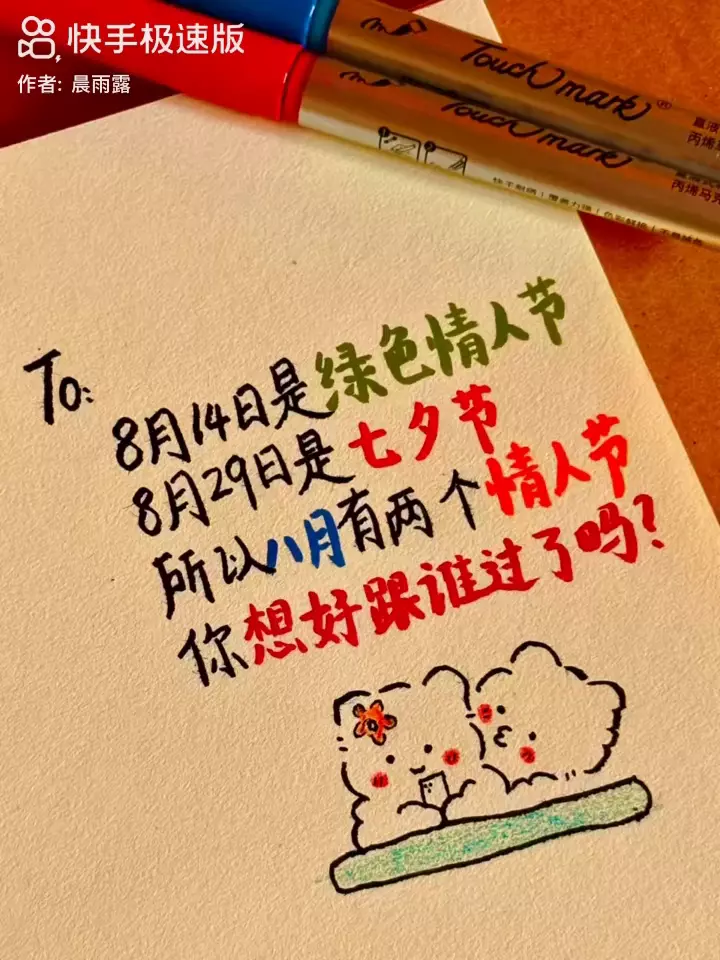 快手极速版
作者: 晨雨露
Touch mark
Touch mark
To:
8月14日是绿色情人节
8月29日是七夕节
所以八月有两个情人节
你想好跟谁过了吗?